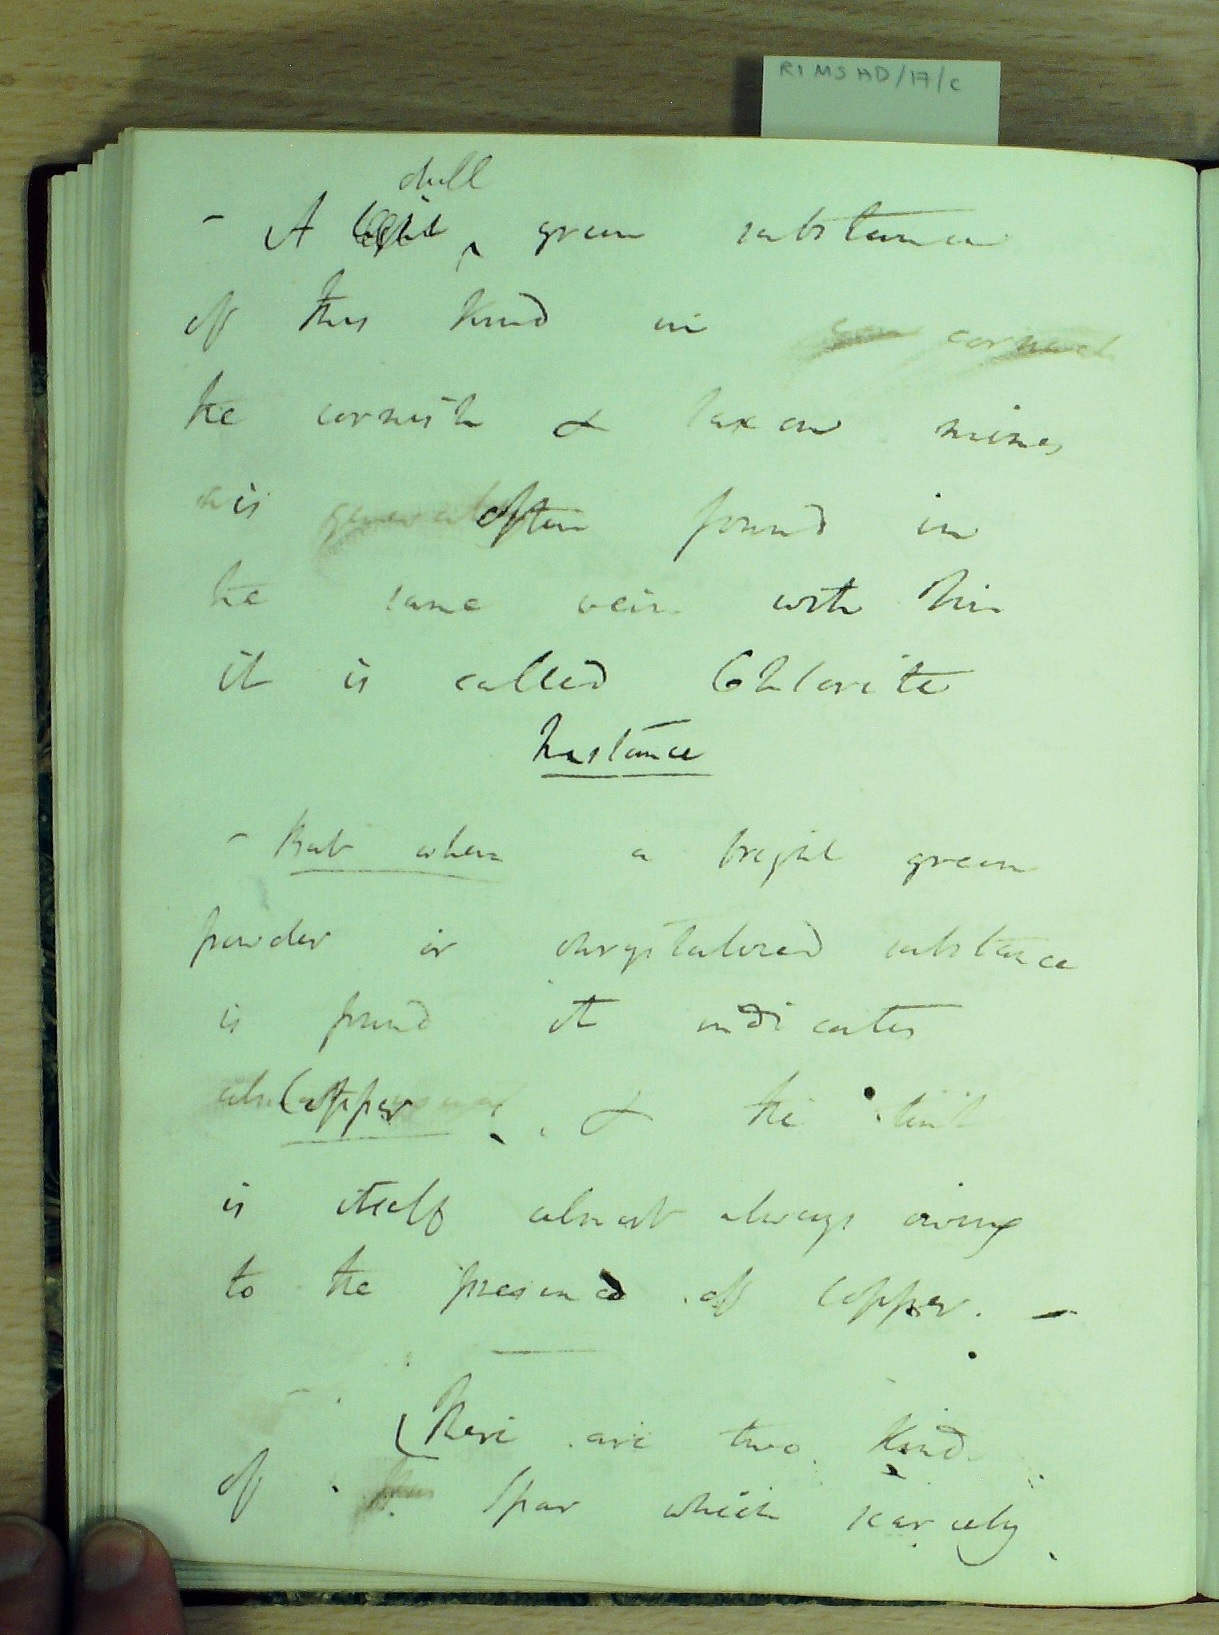 RI MS HD/17/C
dull
- A light ^ green substance
of this kind in cornish
the cornish & saxon mines
is generally often found in
the same vein with Tin
it is called Chlorite
Instance
- But when a bright green
powder or chrystalized substance
is found it indicates
Copper & the tint
is itself almost always owing
to the presence of Copper. -
There are two kinds
of Spar which scarcely